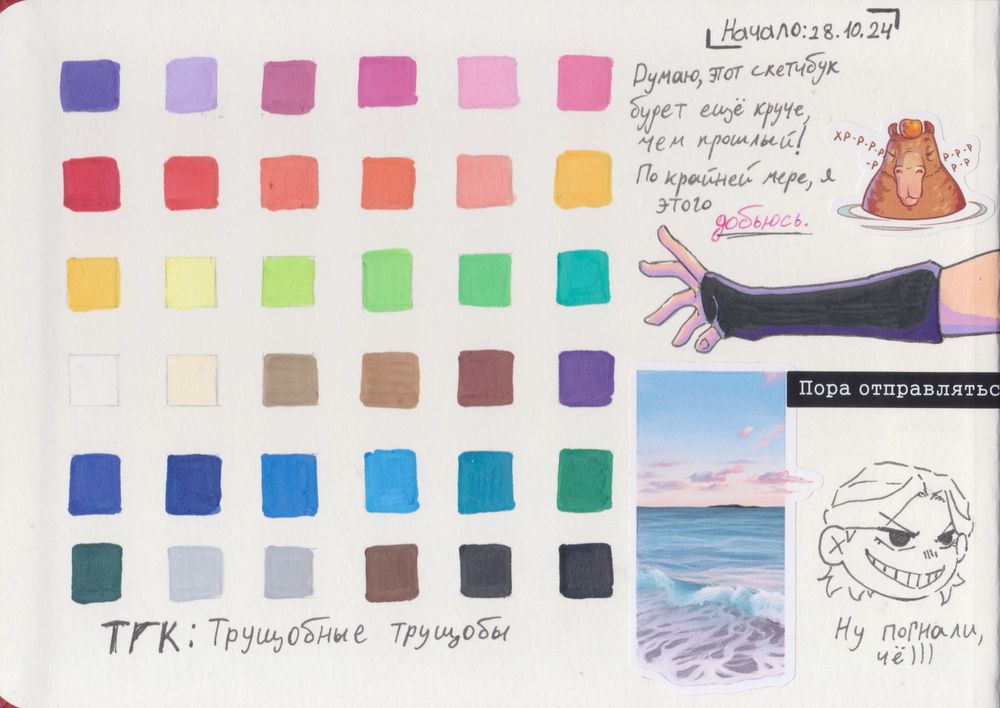 Начало: 28.10.24
Думаю, этот скетчбук
будет ещё круче,
чем прошлый!
По крайней мере, я
этого
добьюсь.
ХР-Р-Р-Р
-Р
Р-Р-Р
Р-Р
Пора отправлятьс
Ну погнали,
чё)))
ТГК: Трущобные трущобы